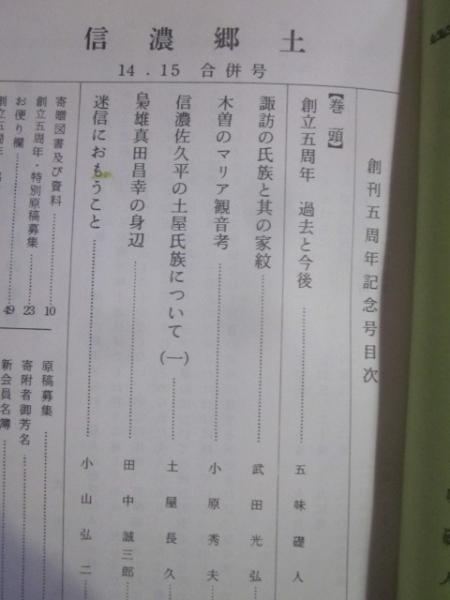 信濃郷土
14.15 合併号
創刊五周年記念号目次
【巻頭】
創立五周年 過去と今後 五味礎人
諏訪の氏族と其の家紋 武田光弘
木曽のマリア観音考 小原秀夫
信濃佐久平の土屋氏族について(一) 土屋長久
梟雄真田昌幸の身辺 田中誠三郎
迷信におもうこと 小山弘二
寄贈図書及び資料 10
創立五周年・特別原稿募集 23
お便り欄 49
創立五周年
原稿募集
寄附者御芳名
新会員名簿